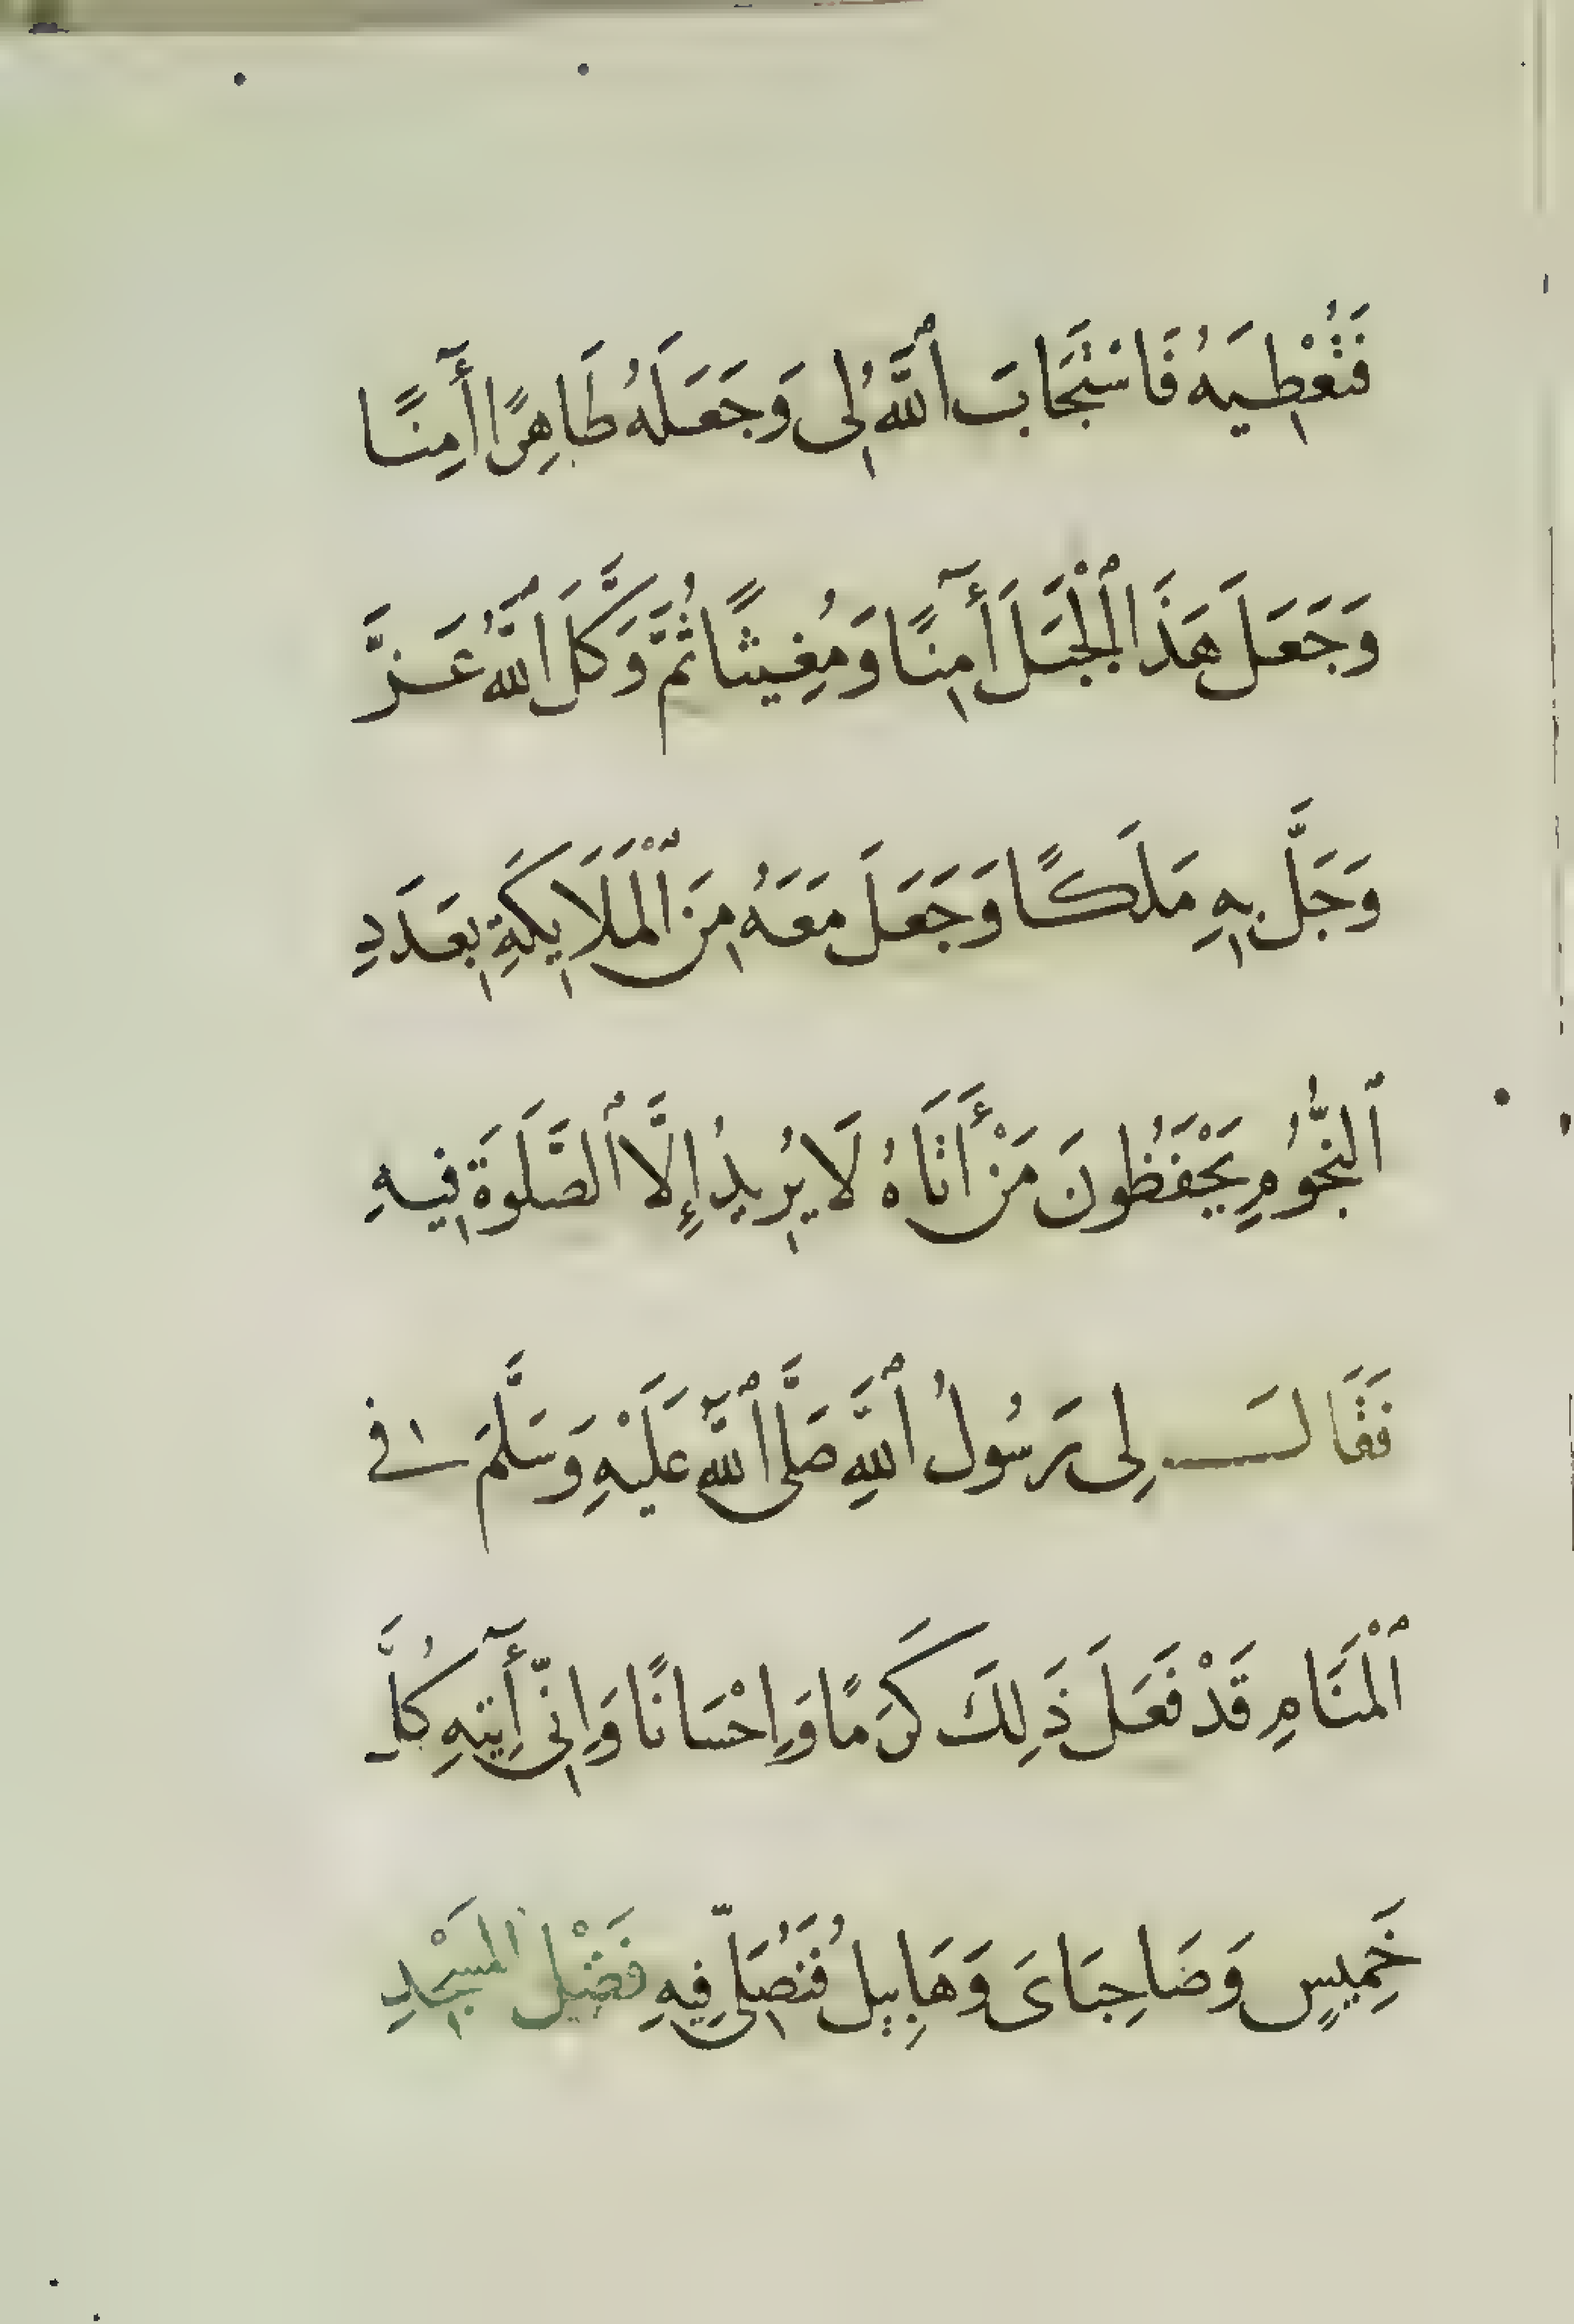 فَتُعْطِيَهُ فَاسْتَجَابَ ٱللَّهُ لِى وَجَعَلَهُ طَاهِرًا أٓمِنًا
وَجَعَلَ هَذَا ٱلْجَبَلَ أٓمِنًا وَمُغِيثًا ثُمَّ وَكَّلَ ٱللَّهُ عَزَّ
وَجَلَّ بِهِ مَلَكًا وَجَعَلَ مَعَهُ مِنَ ٱلْمَلَايِكَةِ بِعَدَدِ
ٱلنُّجُومِ يَحْفَظُونَ مَنْ أَتَاهُ لَا يُرِيدُ إِلَّا ٱلصَّلَوةَ فِيهِ
فَقَالَ لِى رَسُولُ ٱللَّهِ صَلَّى ٱللَّهُ عَلَيْهِ وَسَلَّمَ فِى
ٱلْمَنَامِ قَدْ فَعَلَ ذَلِكَ كَرَمًا وَإِحْسَانًا وَإِنِّى أٓتِيهِ كُلَّ
خَمِيسٍ وَصَاحِبَاىَ وَهَابِيلُ فَنُصَلِّى فِيهِ فَضْلِ ٱلمَسْجِدِ